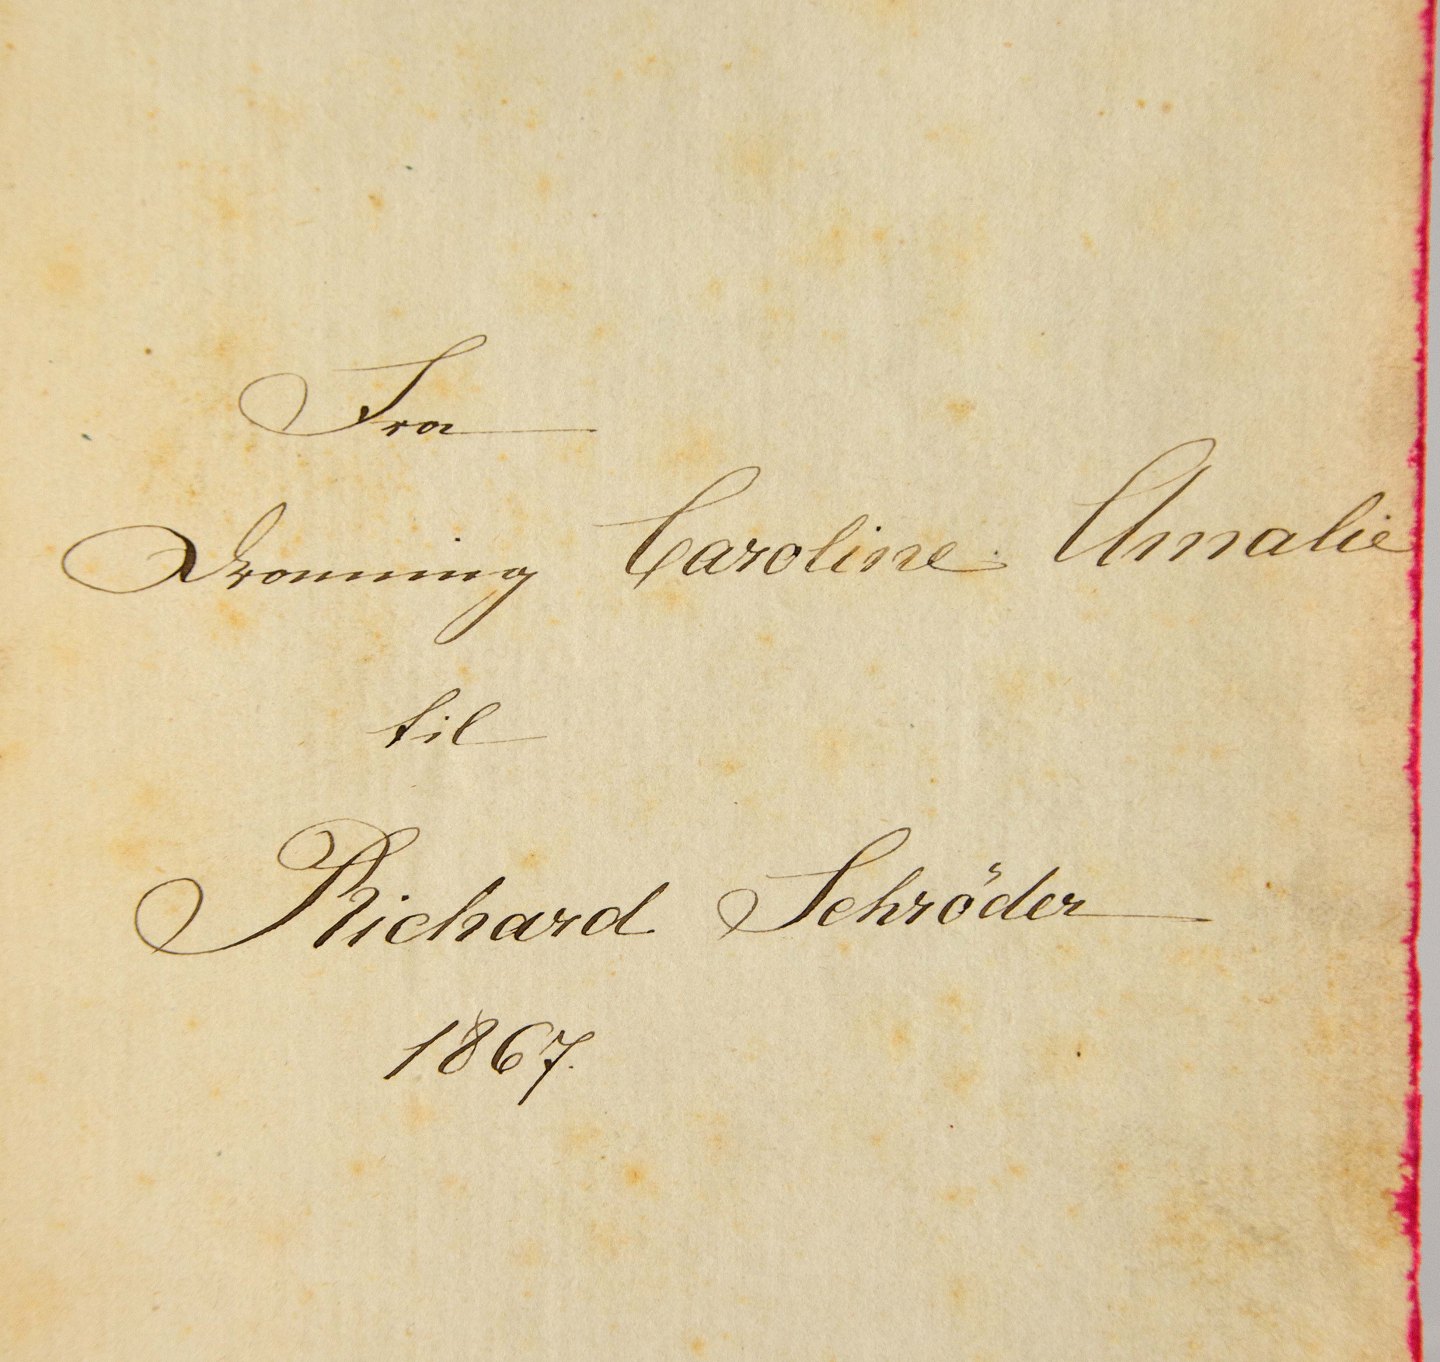 Fra
Dronning Caroline Amalie
til
Richard Schröder
1867.